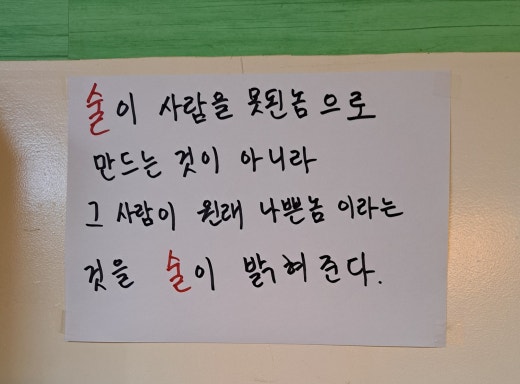 술이 사람을 못된놈으로
만드는 것이 아니라
그 사람이 원래 나쁜놈이라는
것을 술이 밝혀준다.